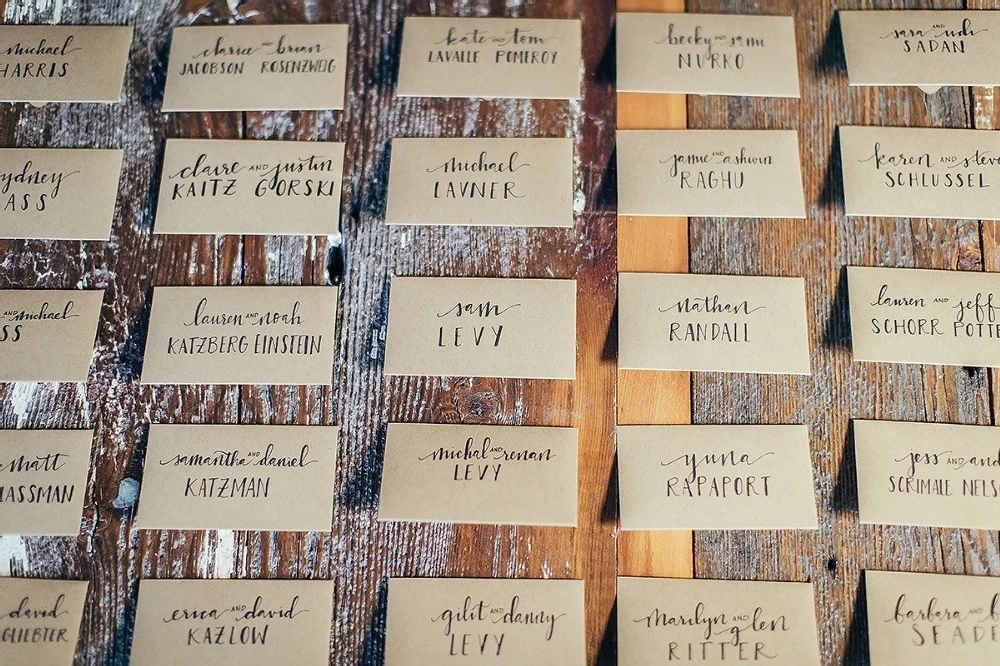 michael
HARRIS
clarice AND brian
JACOBSON ROSENZWEIG
kate AND tom
LAVALLE POMEROY
becky AND sam
NURKO
sara AND udi
SADAN
sydney
ASS
claire AND justin
KAITZ GORSKI
michael
LAVNER
jamie AND ashwin
RAGHU
karen AND steve
SCHLUSSEL
AND michael
SS
lauren AND noah
KATZBERG EINSTEIN
sam
LEVY
nathan
RANDALL
lauren AND jeff
SCHORR POTTE
matt
LASSMAN
samantha AND daniel
KATZMAN
michal AND renan
LEVY
yuna
RAPAPORT
jess AND and
SCRIMALE NELSO
david
GLIEBTER
erica AND david
KAZLOW
gilit AND danny
LEVY
marilyn AND glen
RITTER
barbara AND
SEADE